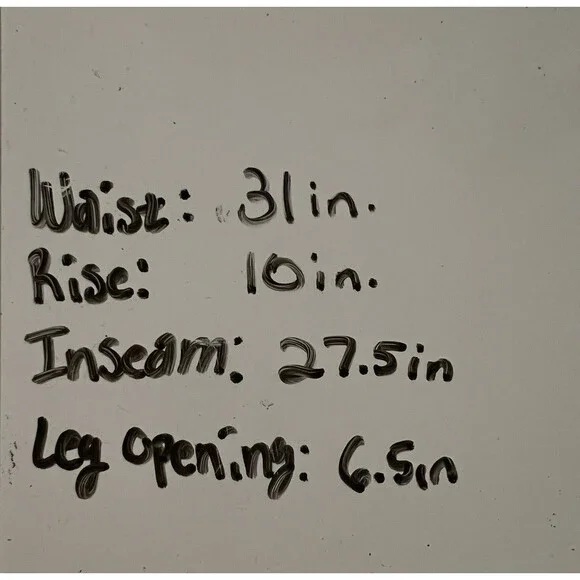 Waist: 31in.
Rise: 10in.
Inseam: 27.5in
Leg opening: 6.5in